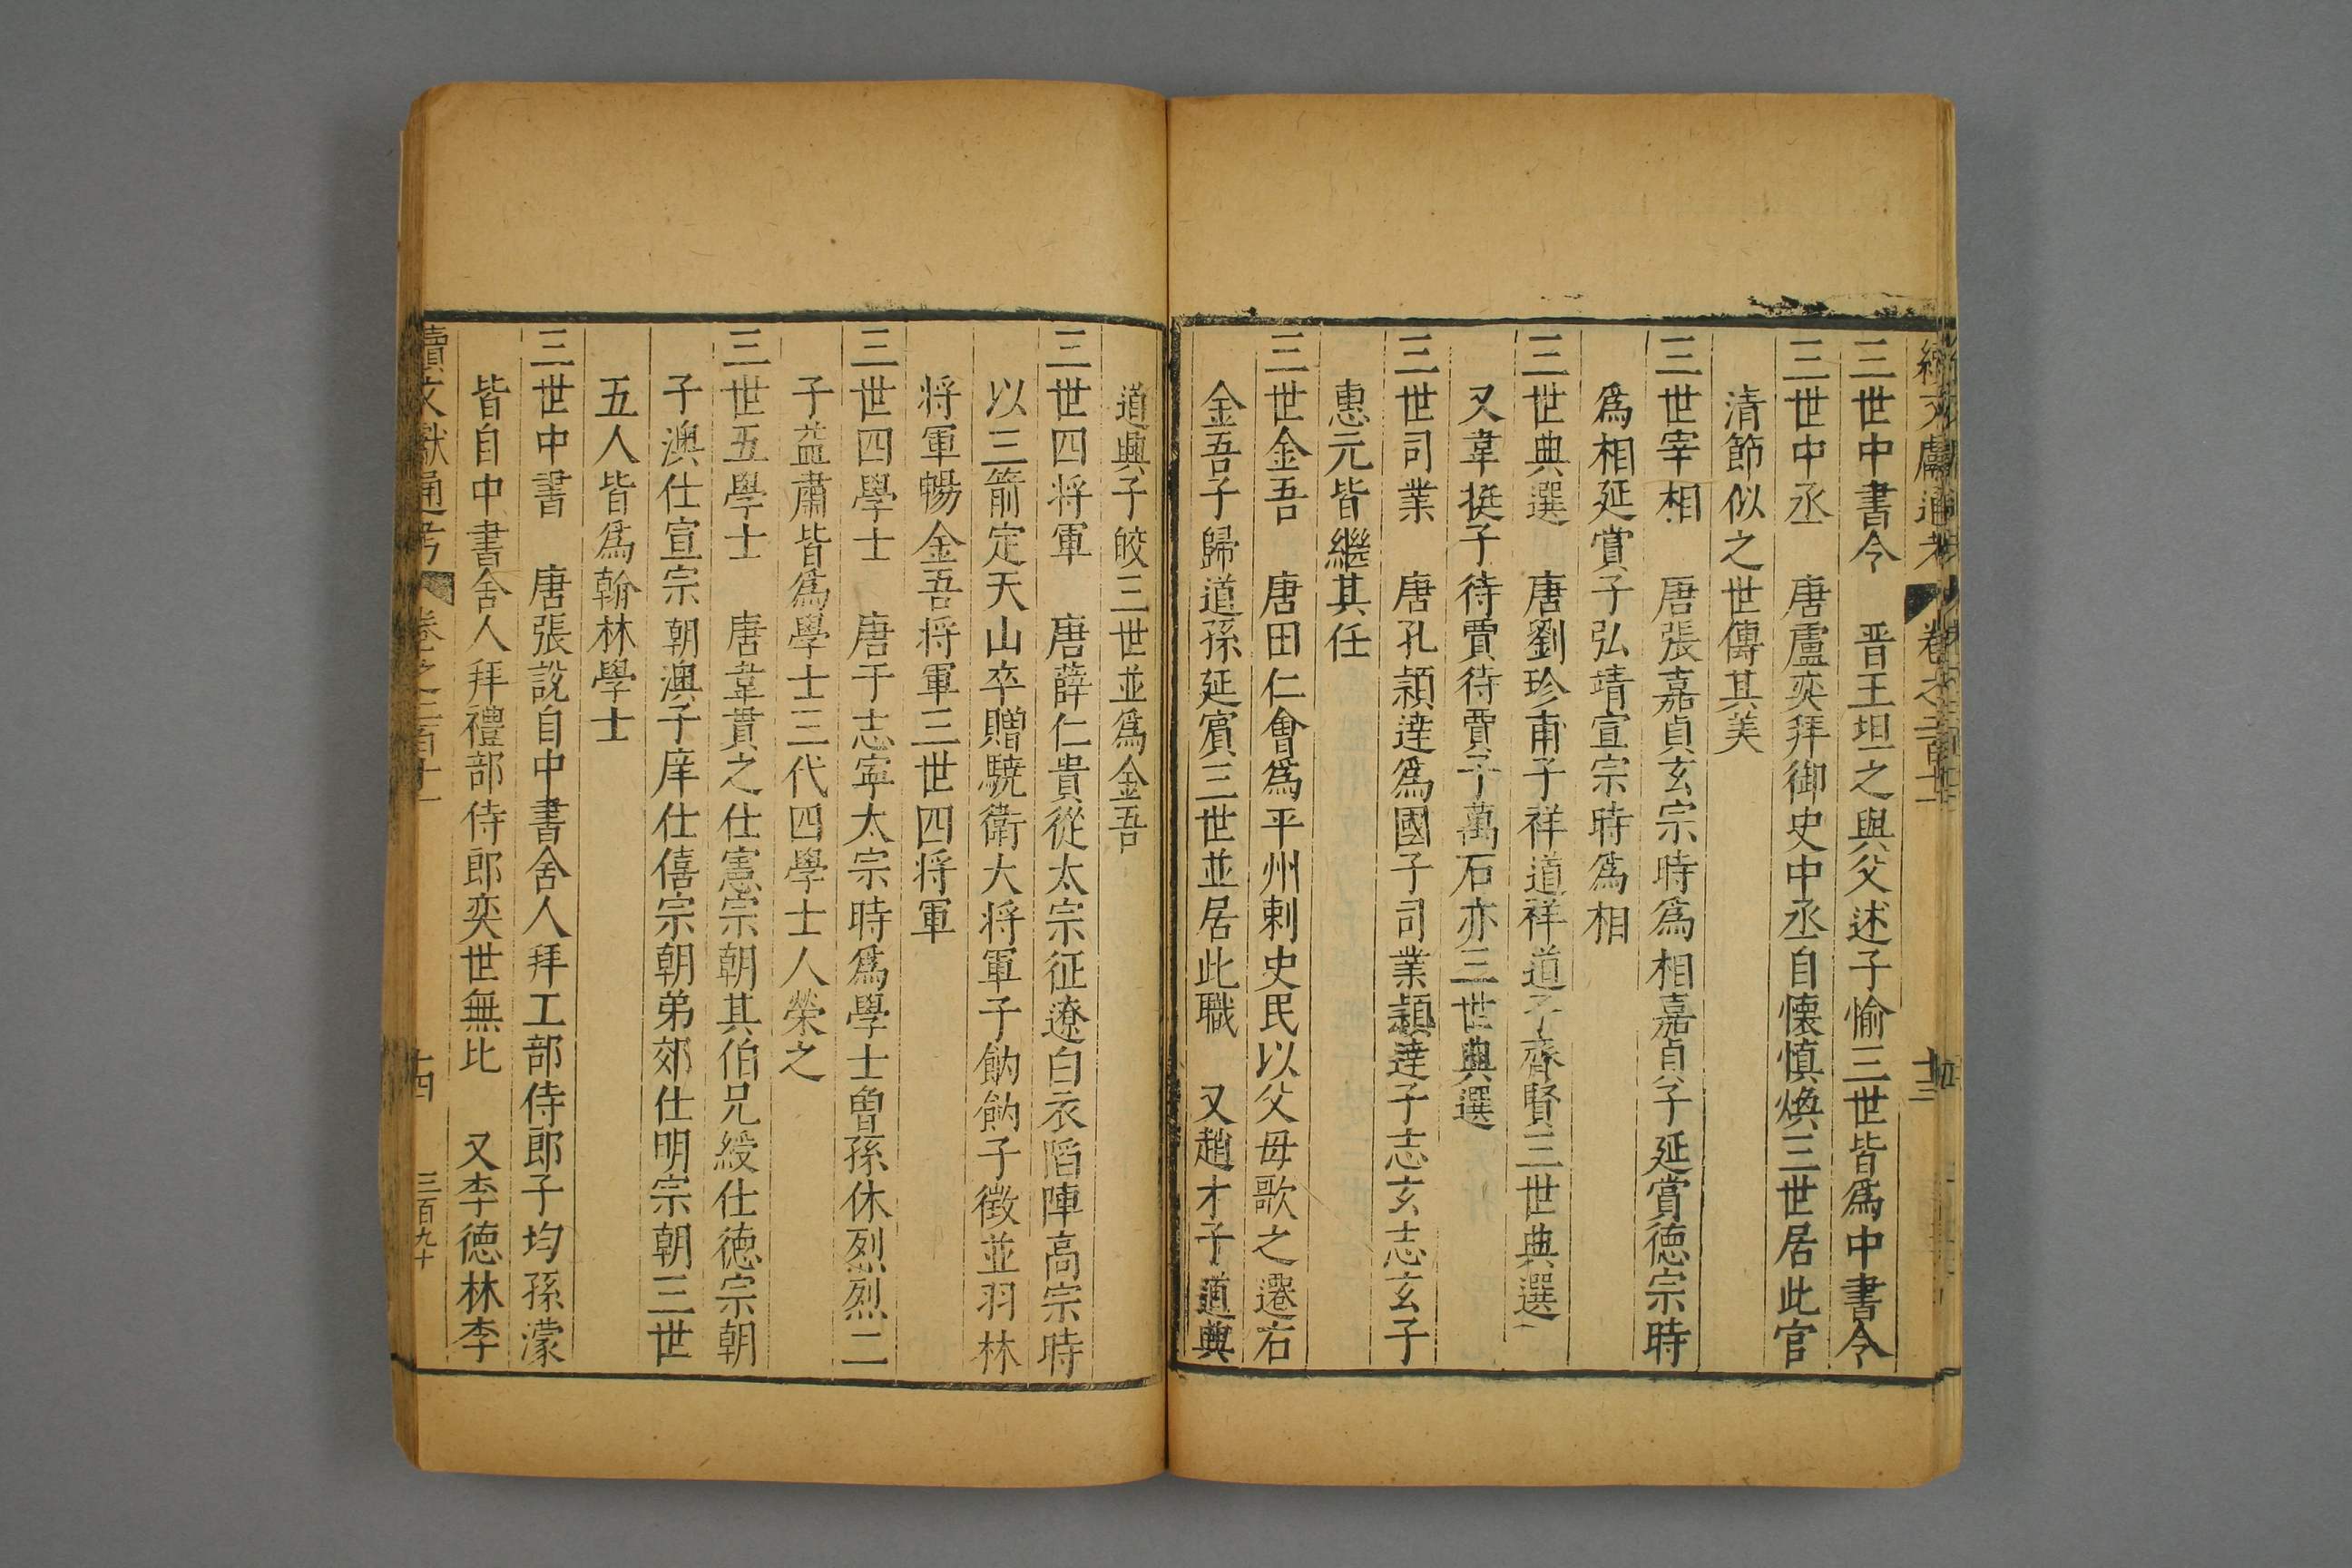 續文獻通考 卷之二百十一 十三
三世中書令 晉王坦之與父述子愉三世皆爲中書令
三世中丞 唐盧奕拜御史中丞自懷慎煥三世居此官
清節似之世傳其美
三世宰相 唐張嘉貞玄宗時爲相嘉貞子延賞德宗時
爲相延賞子弘靖宣宗時爲相
三世典選 唐劉珍甫子祥道祥道子齊賢三世典選
又韋挺子待賈待賈子萬石亦三世典選
三世司業 唐孔穎達爲國子司業穎達子志玄志玄子
惠元皆繼其任
三世金吾 唐田仁會爲平州刺史民以父母歌之遷右
金吾子歸道孫延賓三世並居此職 又趙才子道興
道興子皎三世並爲金吾
三世四將軍 唐薛仁貴從太宗征遼白衣陷陣高宗時
以三箭定天山卒贈驍衛大將軍子訥訥子徵並羽林
將軍暢金吾將軍三世四將軍
三世四學士 唐于志寧太宗時爲學士魯孫休烈烈二
子益肅皆爲學士三代四學士人榮之
三世五學士 唐韋貫之仕憲宗朝其伯兄綬仕德宗朝
子澳仕宣宗朝澳子庠仕僖宗朝弟郊仕明宗朝三世
五人皆爲翰林學士
三世中書 唐張說自中書舍人拜工部侍郎子均孫濛
皆自中書舍人拜禮部侍郎奕世無比 又李德林李
續文獻通考 卷之二百十一 十四 三百九十